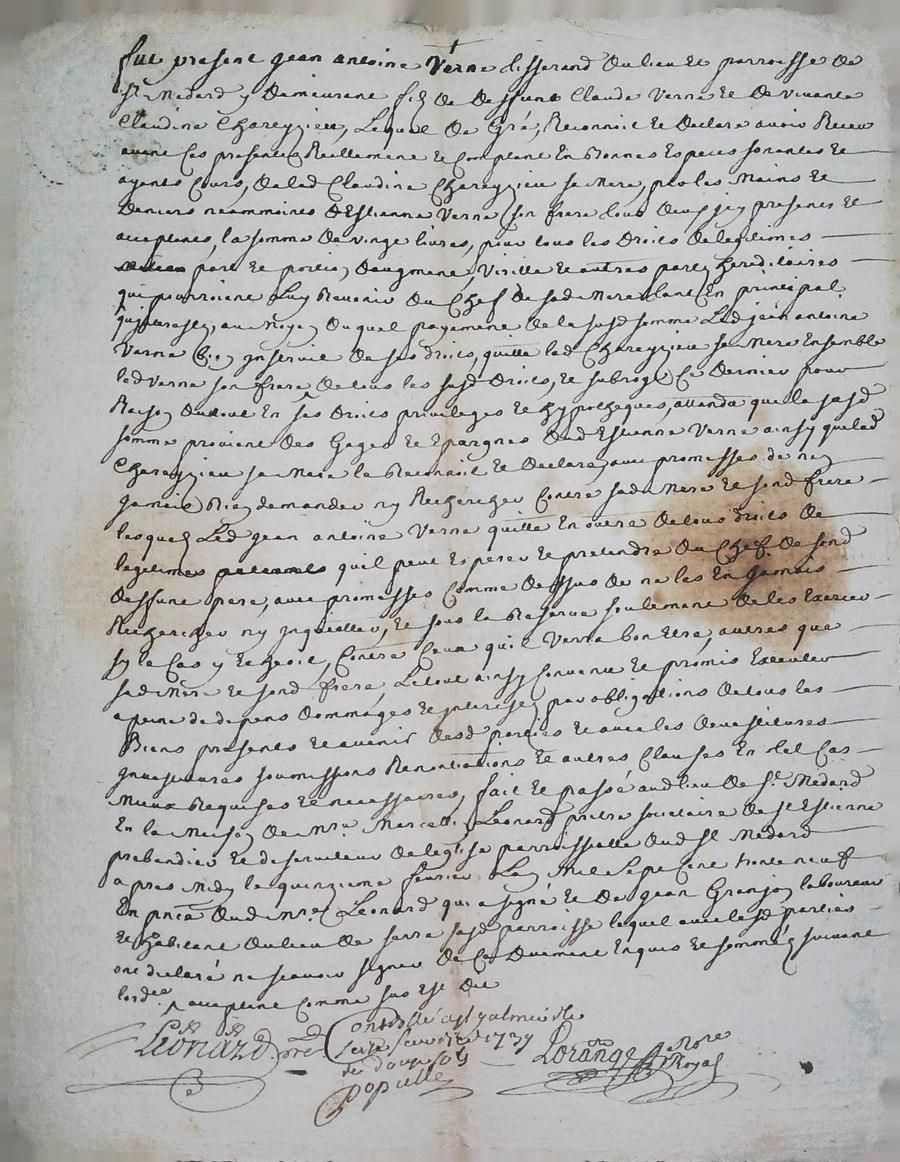 fut present jean antoine Verne tisserand du lieu et parroisse de
St. Medard y demeurant fils de deffunt Claude Verne et de vivante
Claudine Chareyzieu, Lequel de Gré, Reconnoit et declare avoir Receu
avant ces presentes Reellement et Comptant En bonnes Especes sonantes et
ayants Cours, de lad Claudine Chareyzieu sa Mere, par les Mains et
deniers neammoins d'Estienne Verne son frere tous deux icy presents et
acceptants, la somme de vingt livres, pour tous les droits de legitimes
part et portion d'augment, Virille et autres parts hereditaires
qui pourroient Luy Revenir du Chef de sad Mere tant En principal
qu'interests, au Moyen duquel payement de la susd somme Led jean antoine
Verne bien instruit de ses droits, quitte lad Chareyzieu sa Mere Ensemble
led Verne son frere de tous les susd droits, et subroge Ce dernier pour
Raison du tout En ses droits privileges et hypotheques, attendu que la susd
somme provient des Gages et Epargnes dud Estienne Verne ainsy que lad
Chareyzieu sa Mere le Reconnoit et declare, avec promesses de n'en
jamais Rien demander ny Rechercher Contre sad Mere et sond frere
lesquels Led jean antoine Verne quitte En outre de tous droits de
legitimes qu'il peut Esperer et pretendre du Chef de sond
deffunt pere, avec promesses Comme dessus de ne les En jamais
Rechercher ny inquietter, et sous la Reserve seulement de les Exercer
sy le Cas y Echeoit, Contre Ceux qu'il Verra bon Etre, autres que
sad Mere et sond frere, Le tout ainsy Convenu et promis Executer
a peine de depens dommages et interests, par obligations de tous les
Biens presents et avenir desd parties et avec les devestitures
investitures soumissions Renontiations et autres Clauses En tel Cas
Mieux Requises et necessaires, fait et passé aud lieu de St. Medard
En la Maison de Mre. Leonard pretre societaire de St Estienne
prebendier et deserviteur de l'eglise parroissialle dud St Medard
apres Midy le quinzieme fevrier L'an Mil sept Cent trente neuf
En pnce dud mre Leonard qui a signé et de jean Granjon laboureur
et habitant du lieu de serre susd parroisse lequel avec lesd parties
ont declaré ne scavoir signer de Ce duement Enquis et sommés suivant
lordce
acceptant Comme sus est dit
Leonard pre
Controllé a St galmier le
seize fevrier 1739
Populle
Lorange Nore
Royal